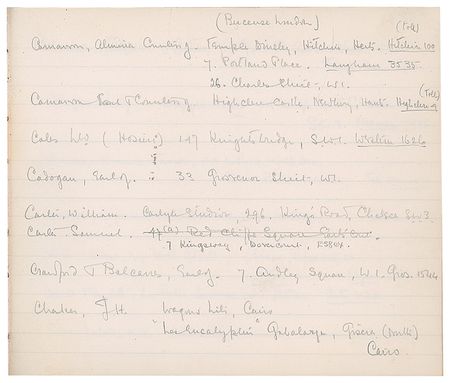 (Bucense London) (Tele)
Carnarvon, Almina Countess of. Temple Dinsley, Hitchin, Herts. Hitchin 100
7. Portland Place. Langham 3535.
26. Charles Street, W1.
(Tele)
Carnarvon Earl & Countess of. Highclere Castle, Newbury, Hants. Highclere
Coles Ltd (Hosiers) 147 Knightsbridge, S.W.1. Western 1626
Cadogan, Earl of. 33 Grosvenor Street, W1.
Carter, William. Carlyle Studios, 296. King's Road, Chelsea S.W.3.
Carter Samuel. 47(a) Red Cliffe Square Earls Crt.
7 Kingsway, Dovercourt, Essex.
Crawford & Balcarres, Earl of. 7. Audley Square, W.1. Gros. 1544
J.H. Wagons Lits, Cairo
"Les Eucalyptus" Gezireh (North)
Cairo.